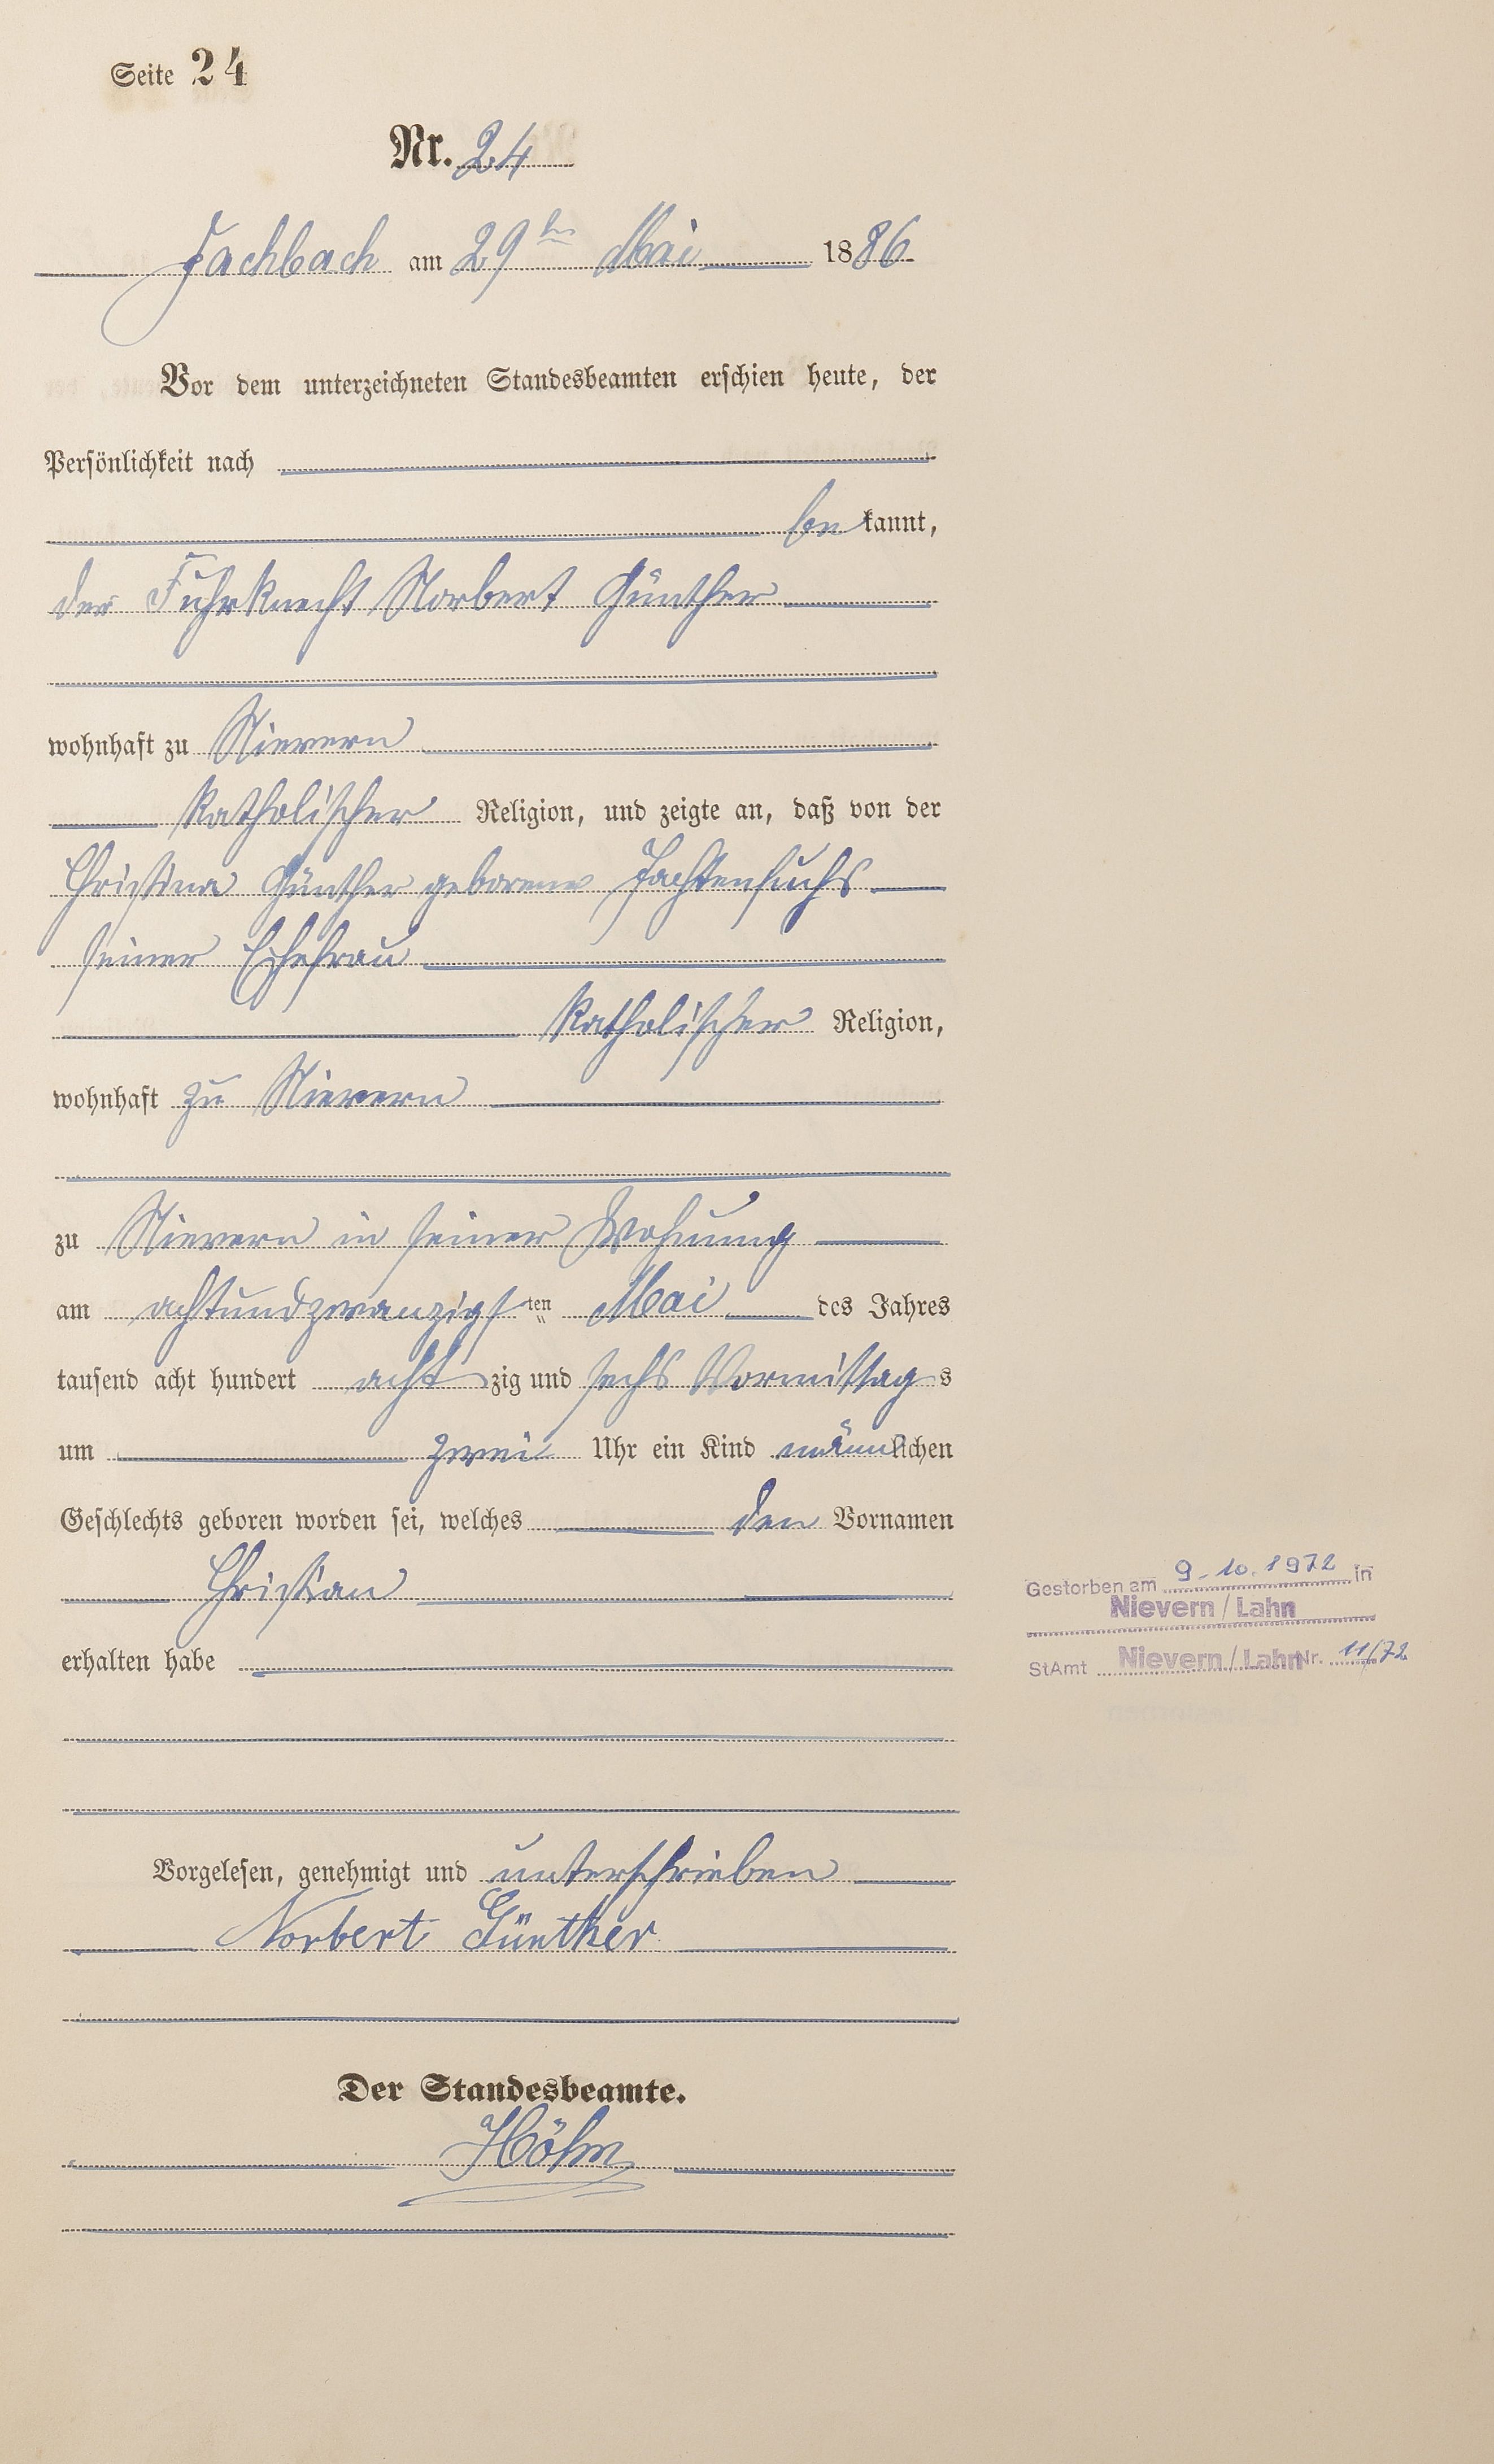 Seite 24
Nr. 24
Fachbach am 29ten Mai 1886
Vor dem unterzeichneten Standesbeamten erschien heute, der
Persönlichkeit nach
bekannt,
der Fuhrknecht Norbert Günther
wohnhaft zu Nievern
katholischer Religion, und zeigte an, daß von der
Christina Günther geborene Fachtenfuchs
seiner Ehefrau
katholischer Religion,
wohnhaft zu Nievern
zu Nievern in seiner Wohnung
am achtundzwanzigsten Mai des Jahres
tausend acht hundert achtzig und sechs Vormittags
um zwei Uhr ein Kind männlichen
Geschlechts geboren worden sei, welches den Vornamen
Christian
Gestorben am 9.10.1972 in
Nievern/Lahn
erhalten habe
StAmt Nievern/Lahn Nr. 11/72
Vorgelesen, genehmigt und unterschrieben
Norbert Günther
Der Standesbeamte.
Höhn